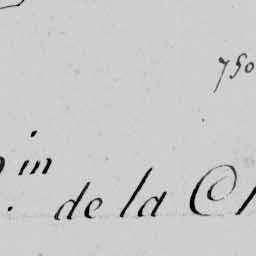 750
in
de la Ch